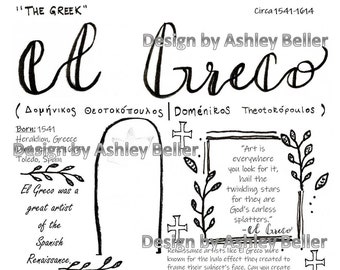 "THE GREEK"
Circa 1541-1614
El Greco
Design by Ashley Beller
( Δομήνικος Θεοτοκόπουλος | Doménikos Theotokópoulos )
Born: 1541
Heraklion, Greece
Design by Ashley Beller
Toledo, Spain
El Greco was a
great artist
of the
Spanish
Renaissance
"Art is
everywhere
you look for it,
hail the
twinkling stars
for they are
God's carless
splatters."
-El Greco
Design by Ashley Beller
Renaissance artists like El Greco were
known for the halo effect they created to
frame their subject's face. Can you create